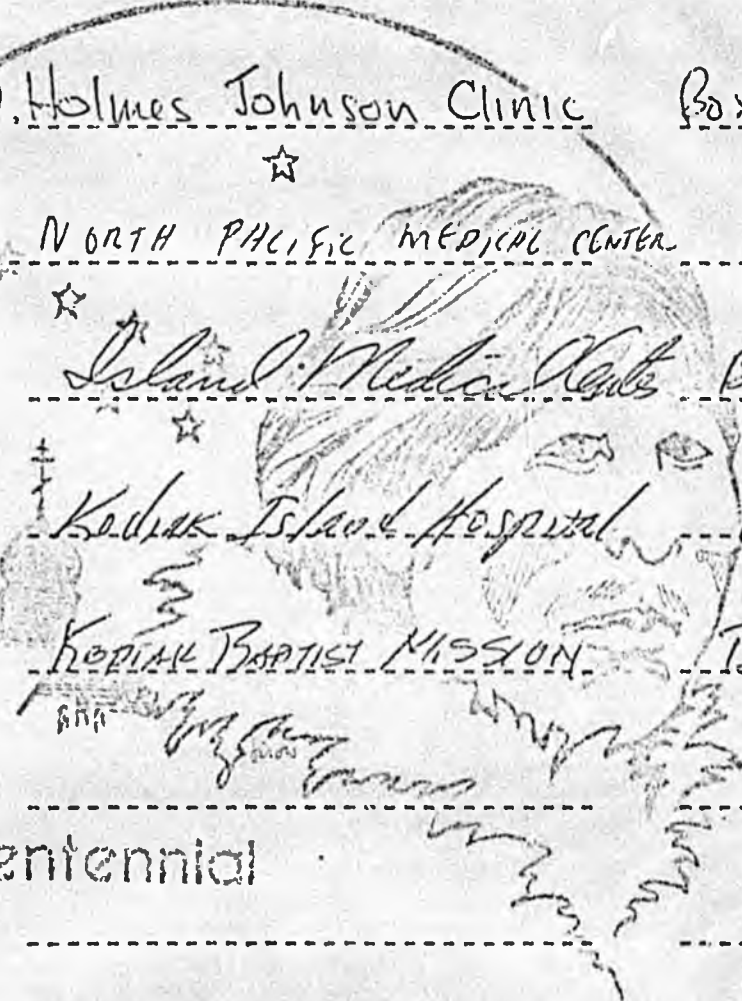 . Holmes Johnson Clinic Box
NORTH PACIFIC MEDICAL CENTER
Island Medical
Kodiak Island Hospital
KODIAK BAPTIST MISSION
entennial